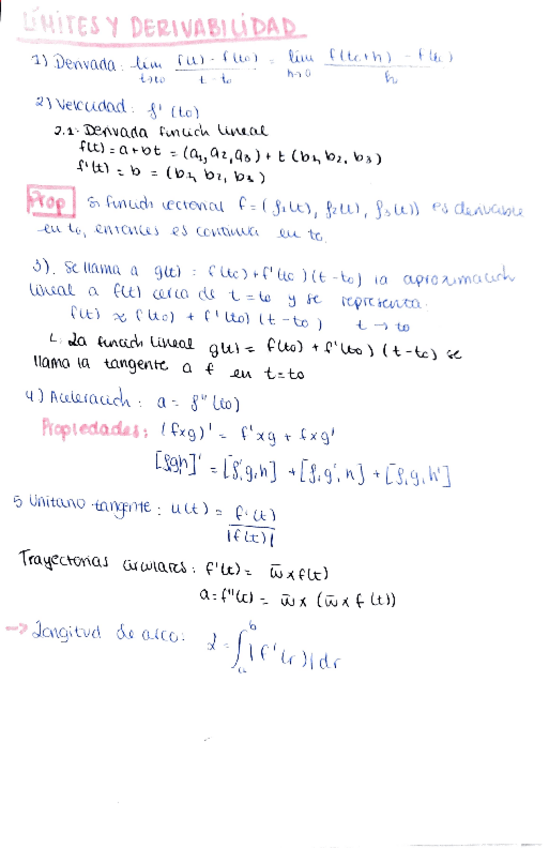 LÍMITES Y DERIVABILIDAD
1) Derivada: lim t→t0 f(t) - f(t0) / t - t0 = lim h→0 f(t0+h) - f(t0) / h
2) Velocidad: f'(t0)
2.1. Derivada función lineal
f(t) = a + bt = (a1, a2, a3) + t (b1, b2, b3)
f'(t) = b = (b1, b2, b3)
Prop Si función vectorial f = (f1(t), f2(t), f3(t)) es derivable
en t0, entonces es continua en t0.
3). Se llama a g(t) = f(t0) + f'(t0) (t - t0) la aproximación
lineal a f(t) cerca de t = t0 y se representa.
f(t) ≈ f(t0) + f'(t0) (t - t0) t → t0
L. La función lineal g(t) = f(t0) + f'(t0) (t - t0) se
llama la tangente a f en t = t0
4) Aceleración: a = f''(t0)
Propiedades: (f×g)' = f'×g + f×g'
[fgh]' = [f',g,h] + [f,g',h] + [f,g,h']
5 Unitario tangente: u(t) = f'(t) / |f(t)|
Trayectorias circulares: f'(t) = w̄ × f(t)
a = f''(t) = w̄ × (w̄ × f(t))
→ Longitud de arco: L = ∫ₐᵇ |f'(r)| dr